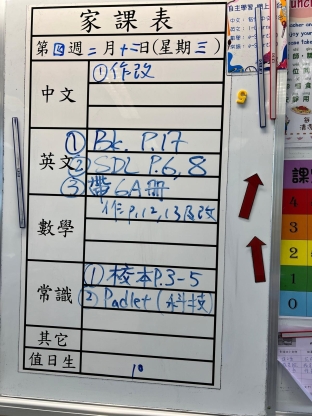 家課表
第四週二月十二日(星期三)
中文
①作改
英文
① Bk. P.17
② SDL P.6, 8
③ 帶6A冊
數學
作P.12,13及改
常識
① 校本P.3-5
② Padlet (科技)
其它
值日生
10
自主學習
課
4
3
2
1
0